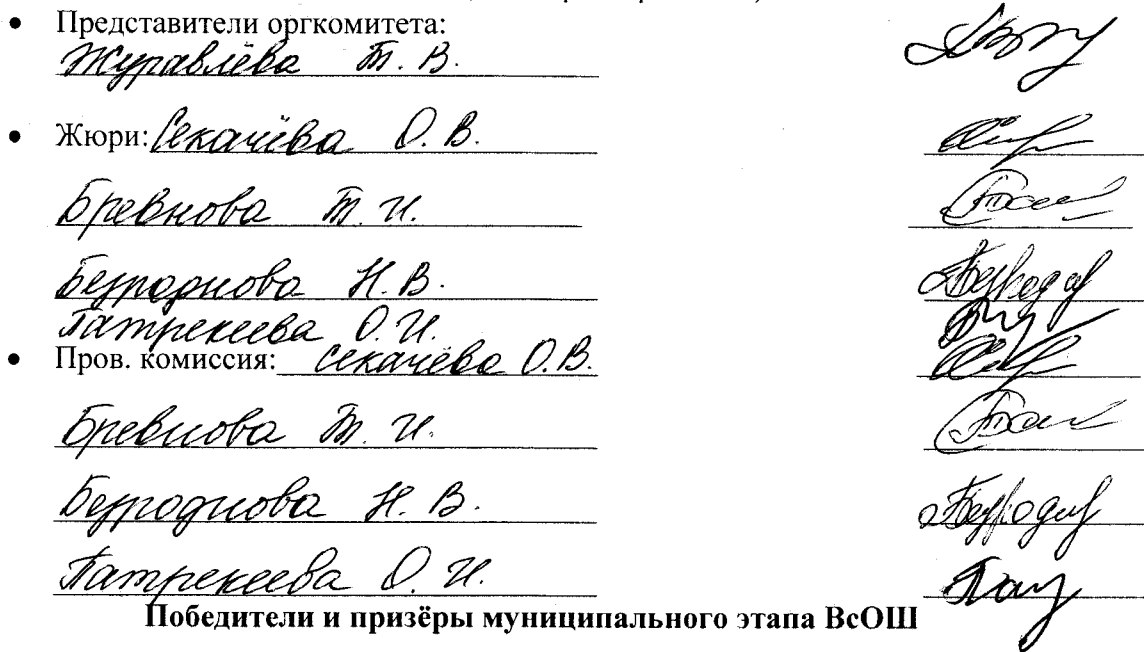 • Представители оргкомитета:
Журавлёва Т. В.
• Жюри: Секачёва О. В.
Бревнова Т. И.
Безроднова Н. В.
Патрекеева О. И.
• Пров. комиссия: Секачёва О. В.
Бревнова Т. И.
Безроднова Н. В.
Патрекеева О. И.
Победители и призёры муниципального этапа ВсОШ